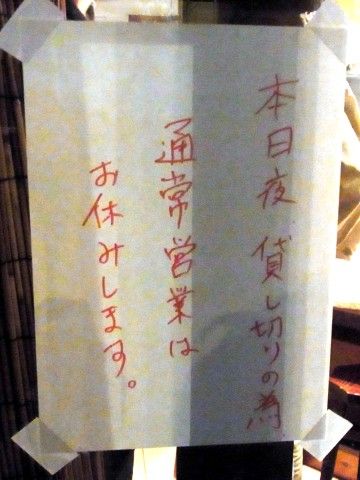 本日夜 貸し切りの為
通常営業は
お休みします。